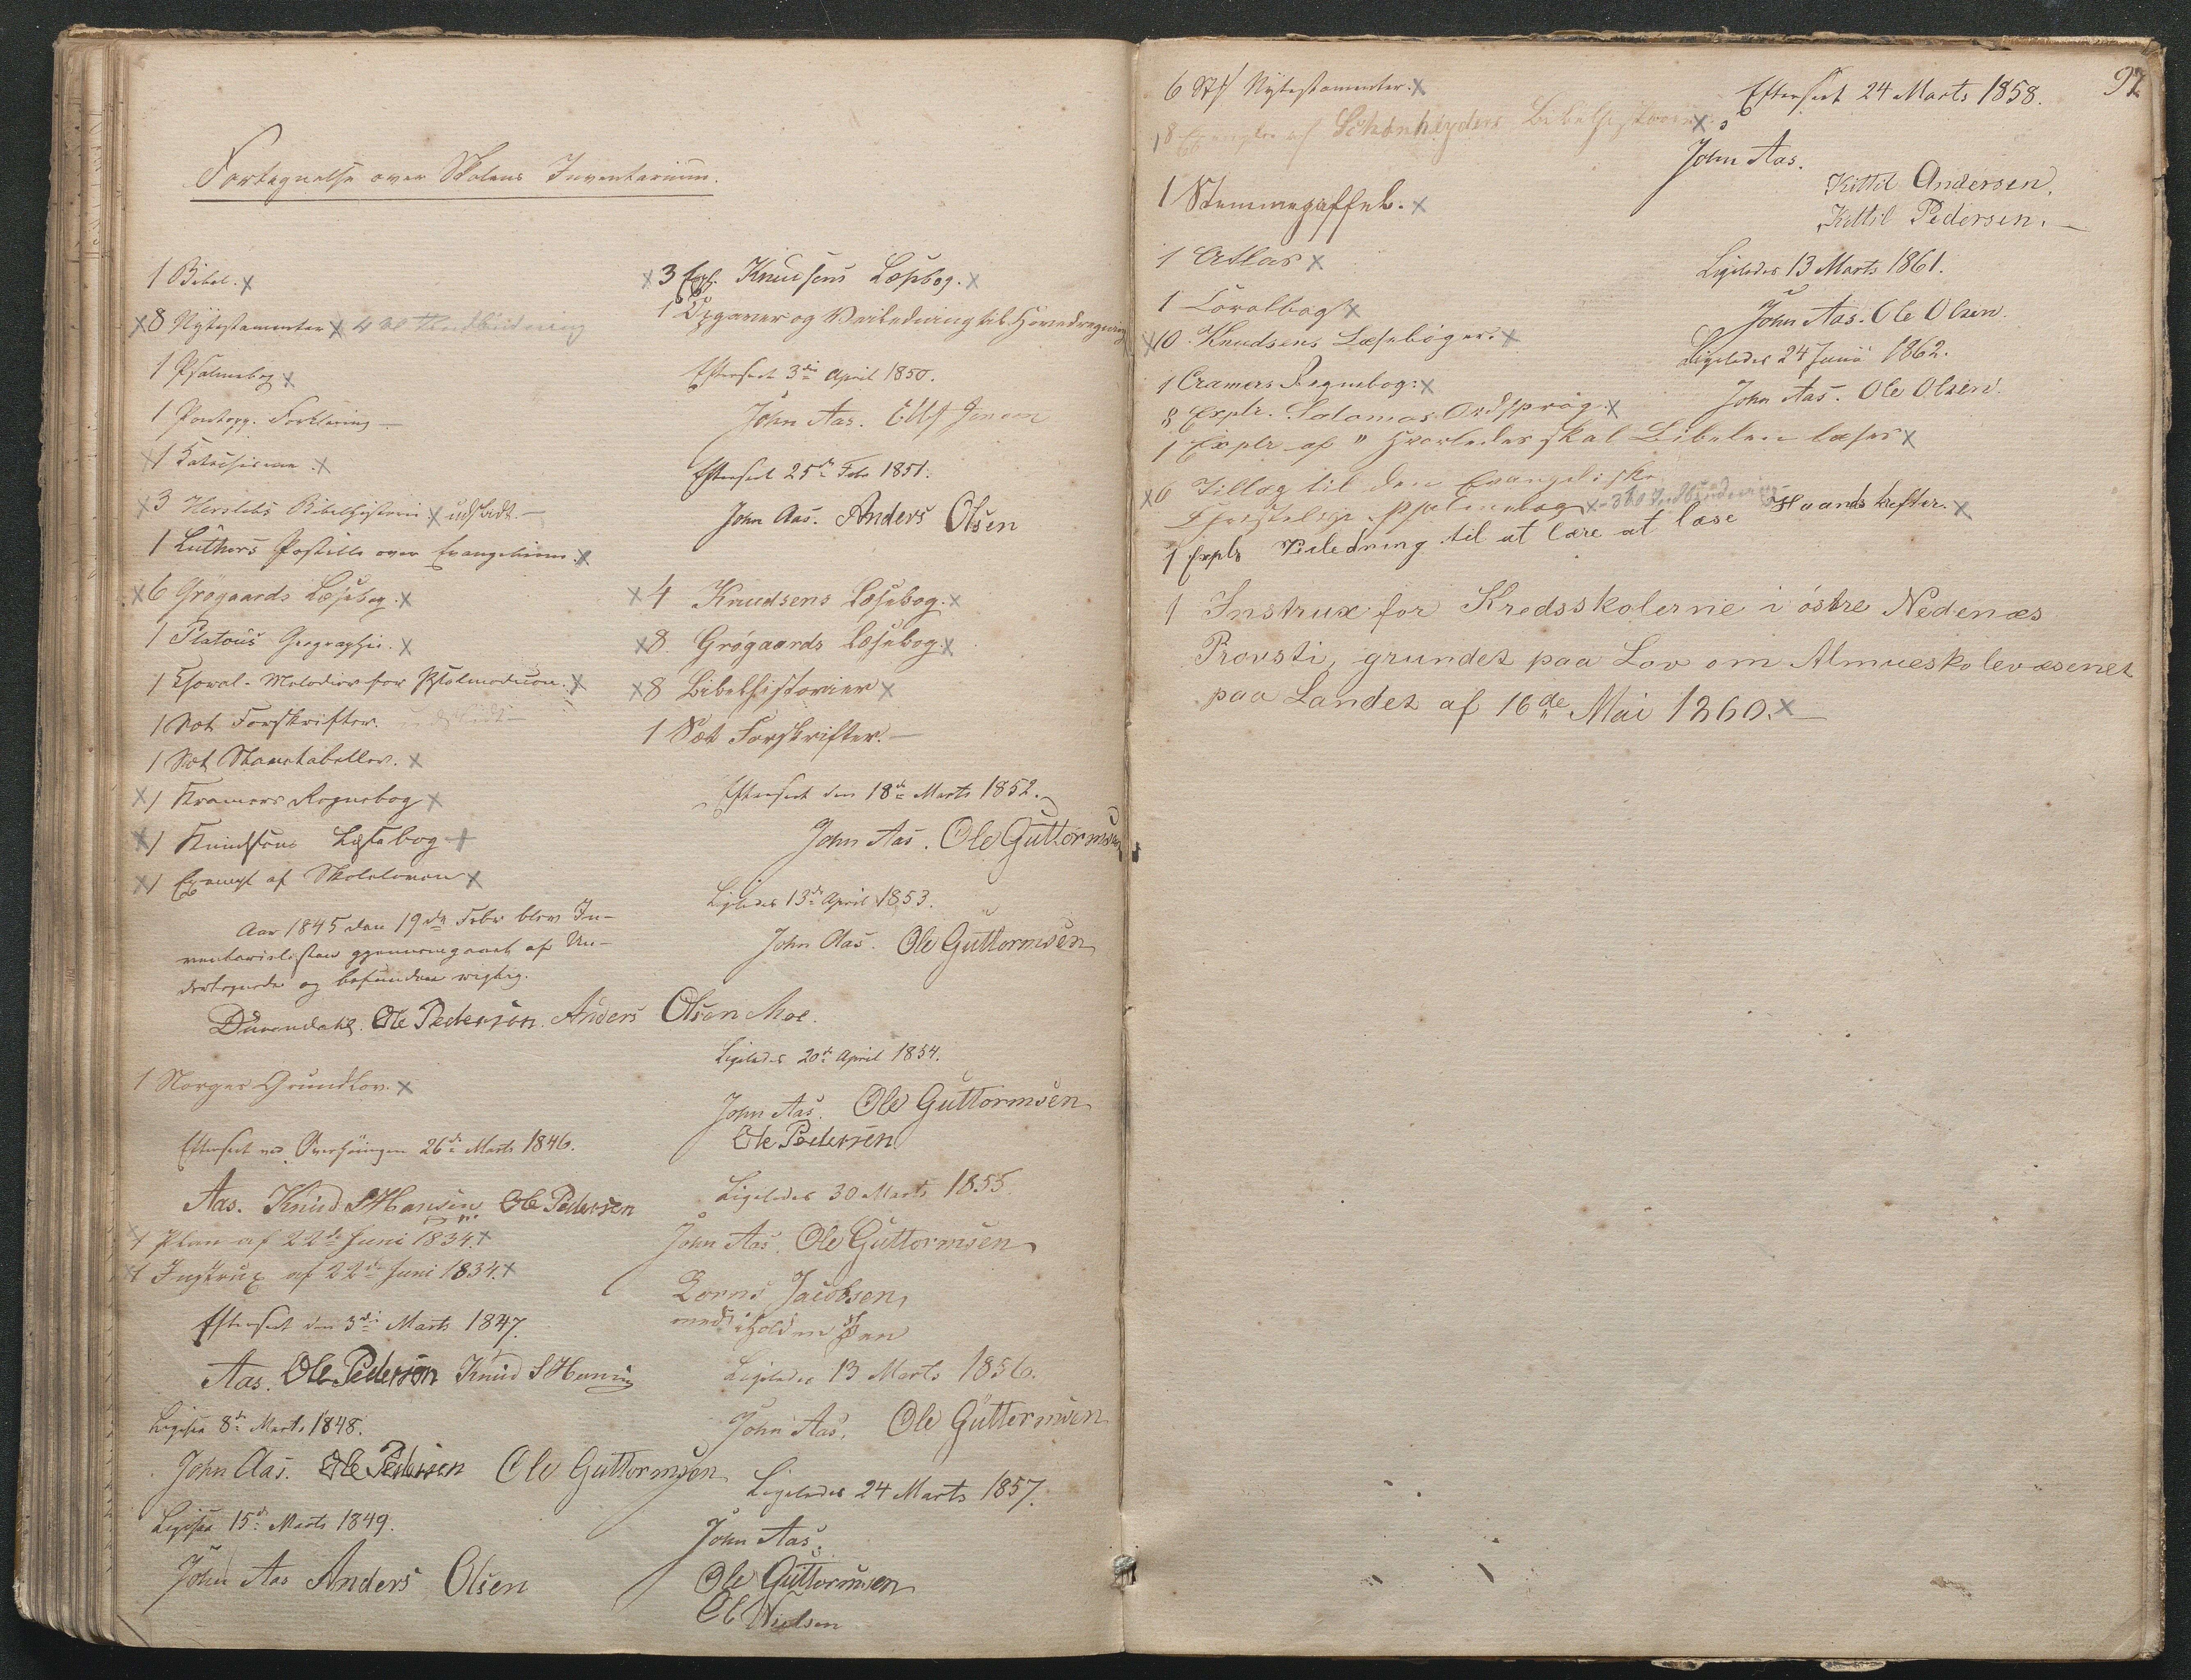 Fortegnelse over Skolens Inventarium.
1 Bibel. x
x8 Nytestamenter x 4 til Indbinding
1 Psalmebog x
1 Pontopp. Forklaring —
x1 Katechisme x
x3 Herslebs Bibelhistorie x udslidt. —
1 Luthers Postille over Evangelierne. x
x6 Grøgaards Læsebog. x
1 Platous Geographie. x
1 Choral-Melodier for Psalmodicon. x
1 Sæt Forskrifter. udslidt —
1 Sæt Stavetabeller. x
x1 Kramers Regnebog x
x1 Knudsens Læsebog x
x1 Exempl af Skoleloven x
Aar 1845 den 19de Febr blev In-
ventarielisten gjennemgaaet af Un-
dertegnede og befunden rigtig.
Ole Pedersen. Anders Olsen Moe.
1 Norges Grundlov. x
Efterseet ved Overhøringen 26de Marts 1846.
Aas. Knud S Hansen Ole Pedersen
x1 Plan af 22de Juni 1834. x
x1 Instrux af 22de Juni 1834. x
Efterseet den 3die Marts 1847.
Aas. Ole Pederson Knud S Hansen
Ligesaa 8de Marts 1848.
John Aas. Ole Pedersen Ole Guttormsen
Ligesaa 15de Marts 1849.
John Aas Anders Olsen
x3 Expl. Knudsens Læsebog. x
1 Opgaver og Veiledning til Hovedregning
Efterseet 3die April 1850.
John Aas. Ellef Jensen
Efterseet 25de Febr 1851.
John Aas. Anders Olsen
x4 Knudsens Læsebog. x
x8 Grøgaards Læsebog. x
x8 Bibelhistorier x
1 Sæt Forskrifter. —
Efterseet den 18de Marts 1852.
John Aas. Ole Guttormsen
Ligeledes 13de April 1853.
John Aas. Ole Guttormsen
Ligeledes 20de April 1854.
John Aas. Ole Guttormsen
Ole Pedersen
Ligeledes 30 Marts 1855.
John Aas. Ole Guttormsen
Jacobsen,
med iholden Pen
Ligeledes 13 Marts 1856.
John Aas. Ole Guttormsen
Ligeledes 24 Marts 1857.
John Aas.
Ole Guttormsen
Ole Nielsen
97
6 Stk Nytestamenter. x
18 Exempler af Schønheyders Bibelhistorie x
1 Stemmegaffel. x
1 Atlas x
1 Coralbog x
x10 Knudsens Læsebøger. x
1 Cramers Regnebog: x
8 Explr. Salomos Ordsprog. x
1 Explr af "Hvorledes skal Bibelen læses x
x6 Tillæg til den Evangeliske
Christelige Psalmebog x - 3 til Indbinding
1 Explr Veiledning til at lære at læse Haandskrifter. x
1 Instrux for Kredsskolerne i østre Nedenæs
Provsti, grundet paa Lov om Almueskolevæsenet
paa Landet af 16de Mai 1860. x —
Efterseet 24 Marts 1858.
John Aas.
Kittil Andersen.
Kittil Pedersen. —
Ligeledes 13 Marts 1861.
John Aas. Ole Olsen.
Ligeledes 24 Juni 1862.
John Aas. Ole Olsen.